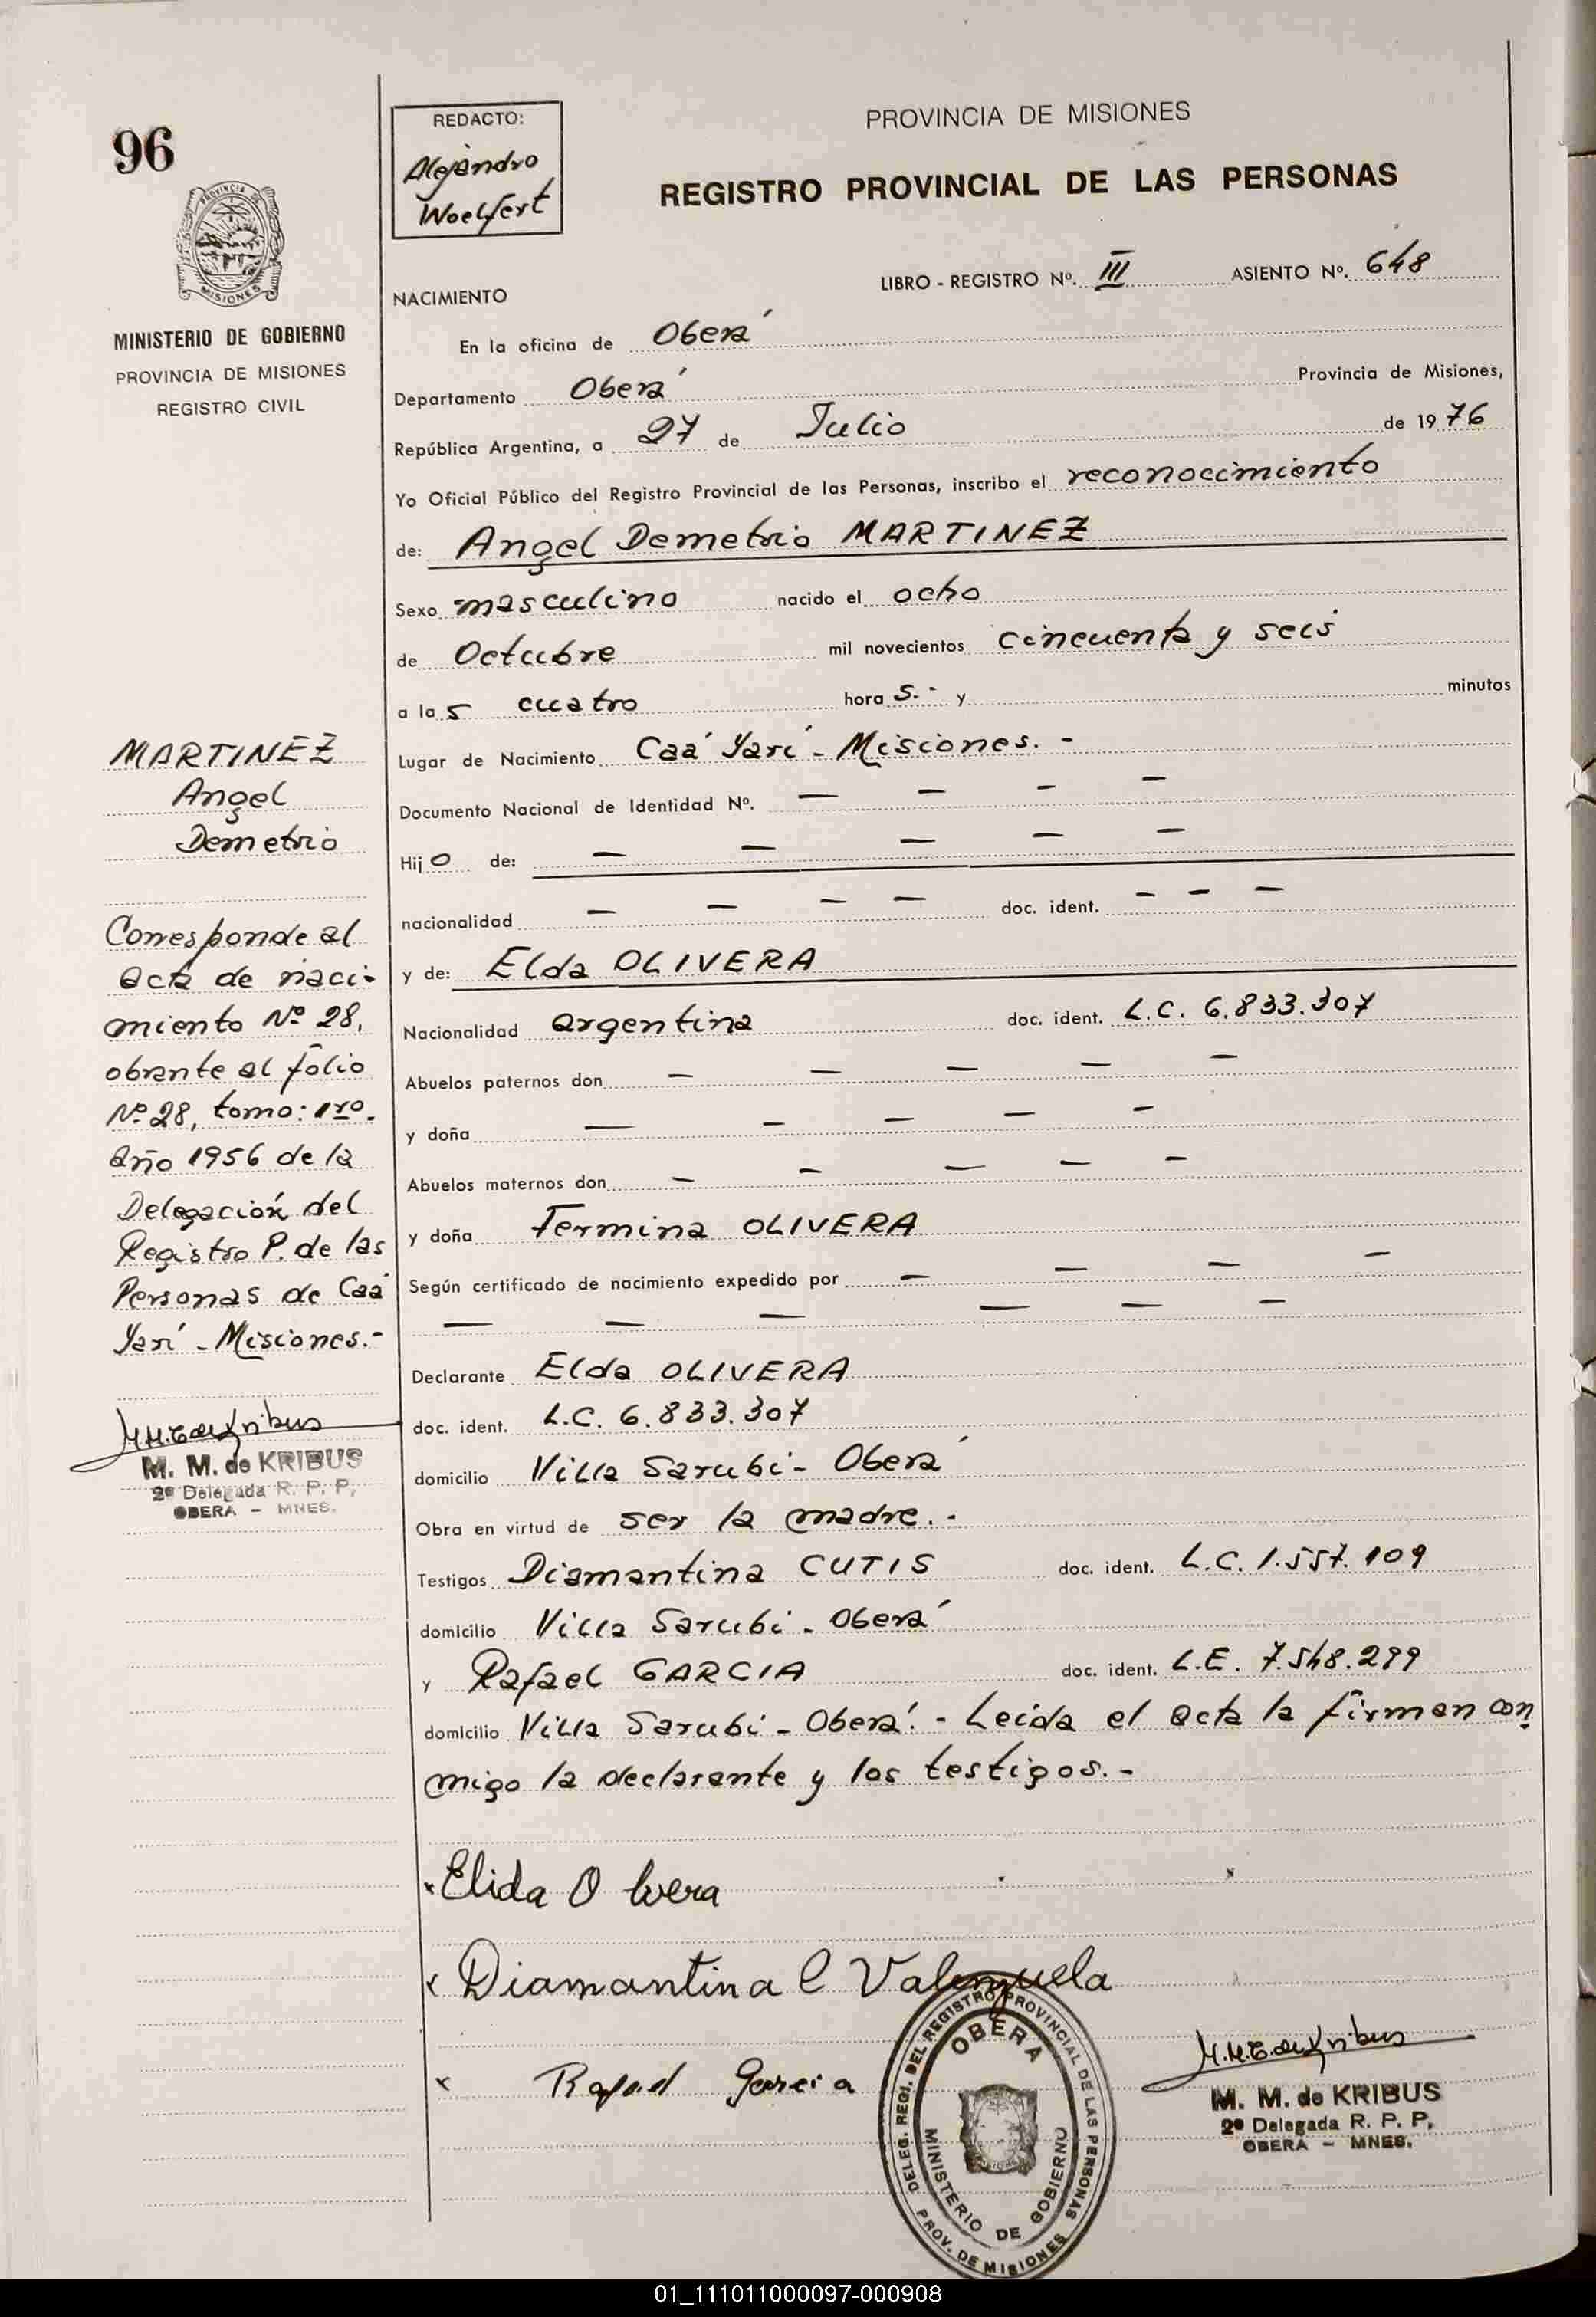 96
REDACTO:
Alejandro
Woelfert
PROVINCIA DE MISIONES
REGISTRO PROVINCIAL DE LAS PERSONAS
PROVINCIA DE
MISIONES
MINISTERIO DE GOBIERNO
PROVINCIA DE MISIONES
REGISTRO CIVIL
LIBRO - REGISTRO Nº. III ASIENTO Nº. 648
NACIMIENTO
En la oficina de Oberá
Departamento Oberá Provincia de Misiones,
República Argentina, a 27 de Julio de 1976
Yo Oficial Público del Registro Provincial de las Personas, inscribo el reconocimiento
de: Angel Demetrio MARTINEZ
Sexo masculino nacido el ocho
de Octubre mil novecientos cincuenta y seis
a la s cuatro hora s.- y minutos
Lugar de Nacimiento Caá Yarí - Misiones. -
Documento Nacional de Identidad Nº. — — — —
Hijo de: — — — — —
nacionalidad — — — — doc. ident. — — —
y de: Elda OLIVERA
Nacionalidad argentina doc. ident. L.C. 6.833.307
Abuelos paternos don — — — — —
y doña — — — — —
Abuelos maternos don — — — — —
y doña Fermina OLIVERA
Según certificado de nacimiento expedido por — — — —
— — — — — —
Declarante Elda OLIVERA
doc. ident. L.C. 6.833.307
domicilio Villa Sarubi - Oberá
Obra en virtud de ser la madre. -
Testigos Diamantina CUTIS doc. ident. L.C. 1.557.109
domicilio Villa Sarubi - Oberá
y Rafael GARCIA doc. ident. L.E. 7.548.299
domicilio Villa Sarubi - Oberá. - Leida el acta la firman con
migo la declarante y los testigos. -
MARTINEZ
Angel
Demetrio
Corresponde al
acta de naci-
miento Nº 28,
obrante al folio
Nº 28, tomo: 1ro.
año 1956 de la
Delegación del
Registro P. de las
Personas de Caá
Yarí - Misiones. -
M. M. de KRIBUS
2ª Delegada R. P. P.
OBERA - MNES.
x Elida Olvera
x Diamantina C Valenzuela
x Rafael Garcia
DELEG. REGI. DEL REGISTRO PROVINCIAL DE LAS PERSONAS
OBERA
MINISTERIO DE GOBIERNO
PROV. DE MISIONES
M. M. de KRIBUS
2ª Delegada R. P. P.
OBERA - MNES.
01_111011000097-000908